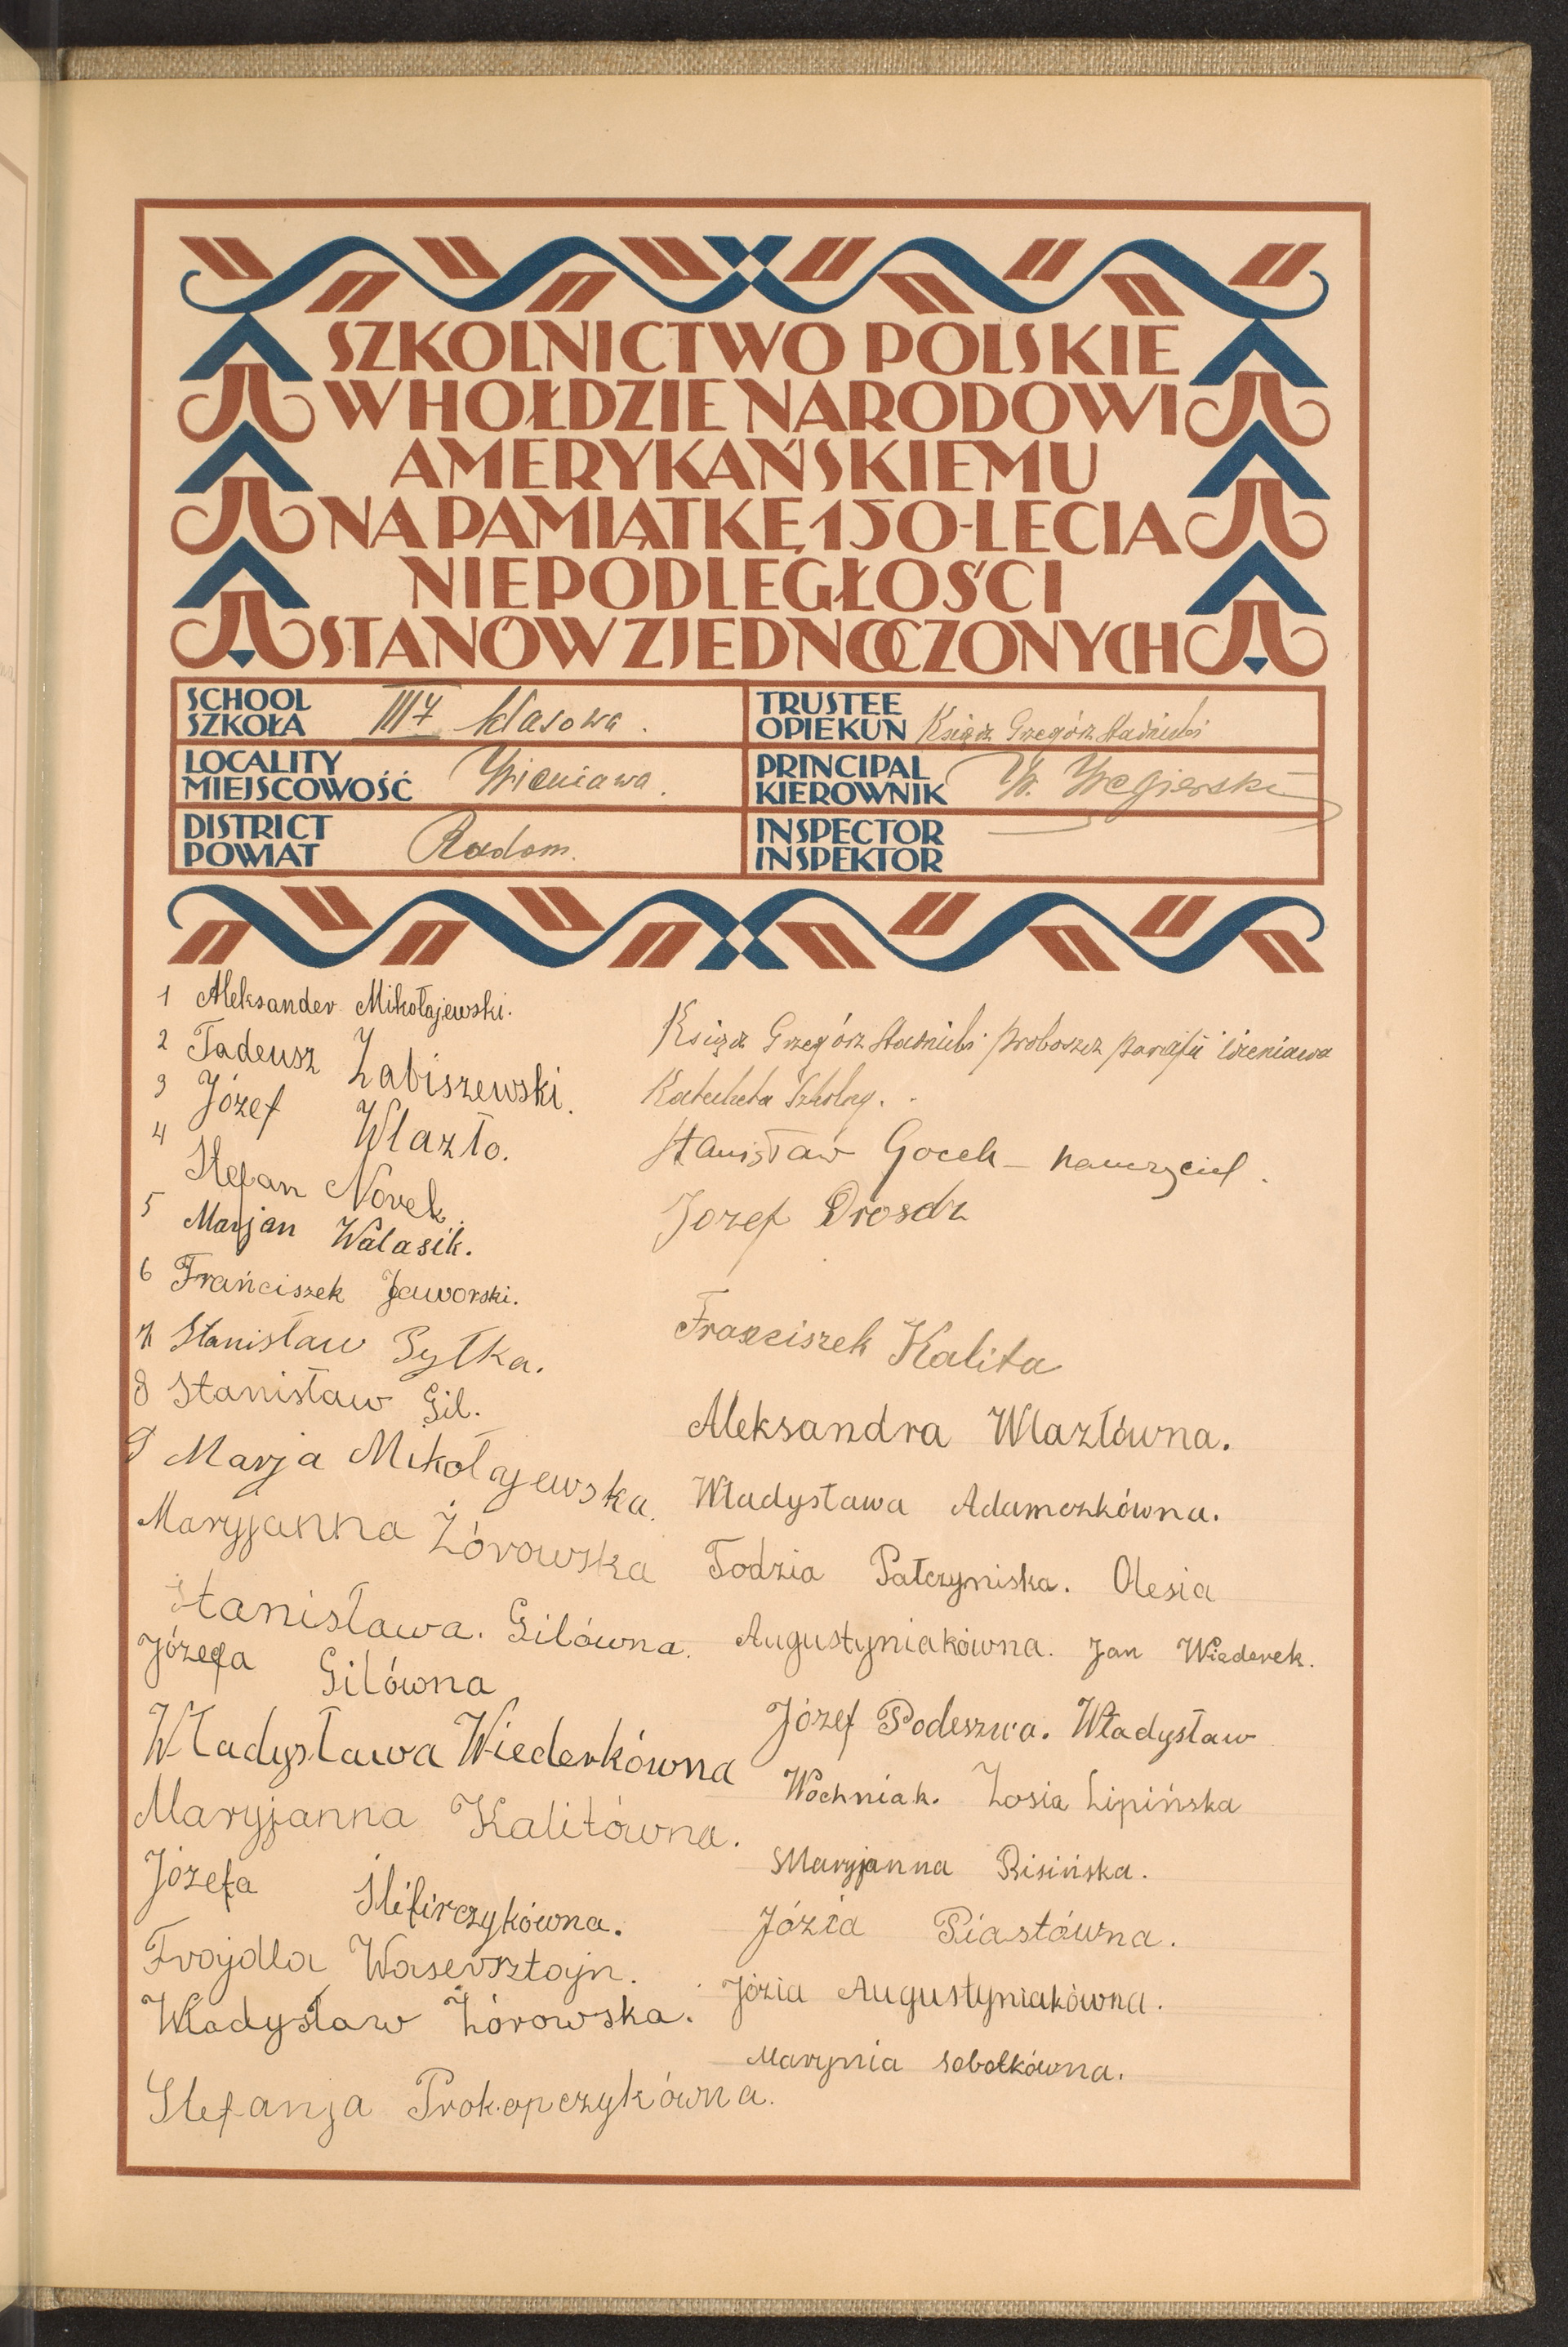 SZKOLNICTWO POLSKIE
W HOŁDZIE NARODOWI
AMERYKAŃSKIEMU
NA PAMIĄTKĘ 150-LECIA
NIEPODLEGŁOŚCI
STANÓW ZJEDNOCZONYCH
SCHOOL
SZKOŁA
III 7 klasowa.
TRUSTEE
OPIEKUN
Ksiądz Grzegórz
LOCALITY
MIEJSCOWOŚĆ
Wieniawa.
PRINCIPAL
KIEROWNIK
W. Węgierski
DISTRICT
POWIAT
Radom.
INSPECTOR
INSPEKTOR
1 Aleksander Mikołajewski.
2 Tadeusz Żabiszewski.
3 Józef Wlazło.
4 Stefan Novek.
5 Marjan Walasik.
6 Frańciszek Jaworski.
7 Stanisław Pytka.
8 Stanisław Gil.
9 Marja Mikołajewska.
Maryjanna Żórowska
Stanisława. Gilówna.
Józefa Gilówna
Władysława Wiederkówna
Maryjanna Kalitówna.
Józefa Slifirczykówna.
Frajdla Wasersztajn.
Władysław Żórowska.
Stefanja Prokopczykówna.
Ksiądz Grzegórz proboszcz parafii Wieniawa
Katecheta Szkolny.
Stanisław Gocel - nauczyciel.
Jozef Drosdz
Franciszek Kalita
Aleksandra Wlazłówna.
Władysława Adamczkówna.
Todzia Pałczyniska. Olesia
Augustyniakówna. Jan Wiaderek.
Józef Podeszwa. Władysław
Wochniak. Zosia Lipińska
Maryjanna Risińska.
Józia Piastówna.
Józia Augustyniakówna.
Marynia Sobotkówna.